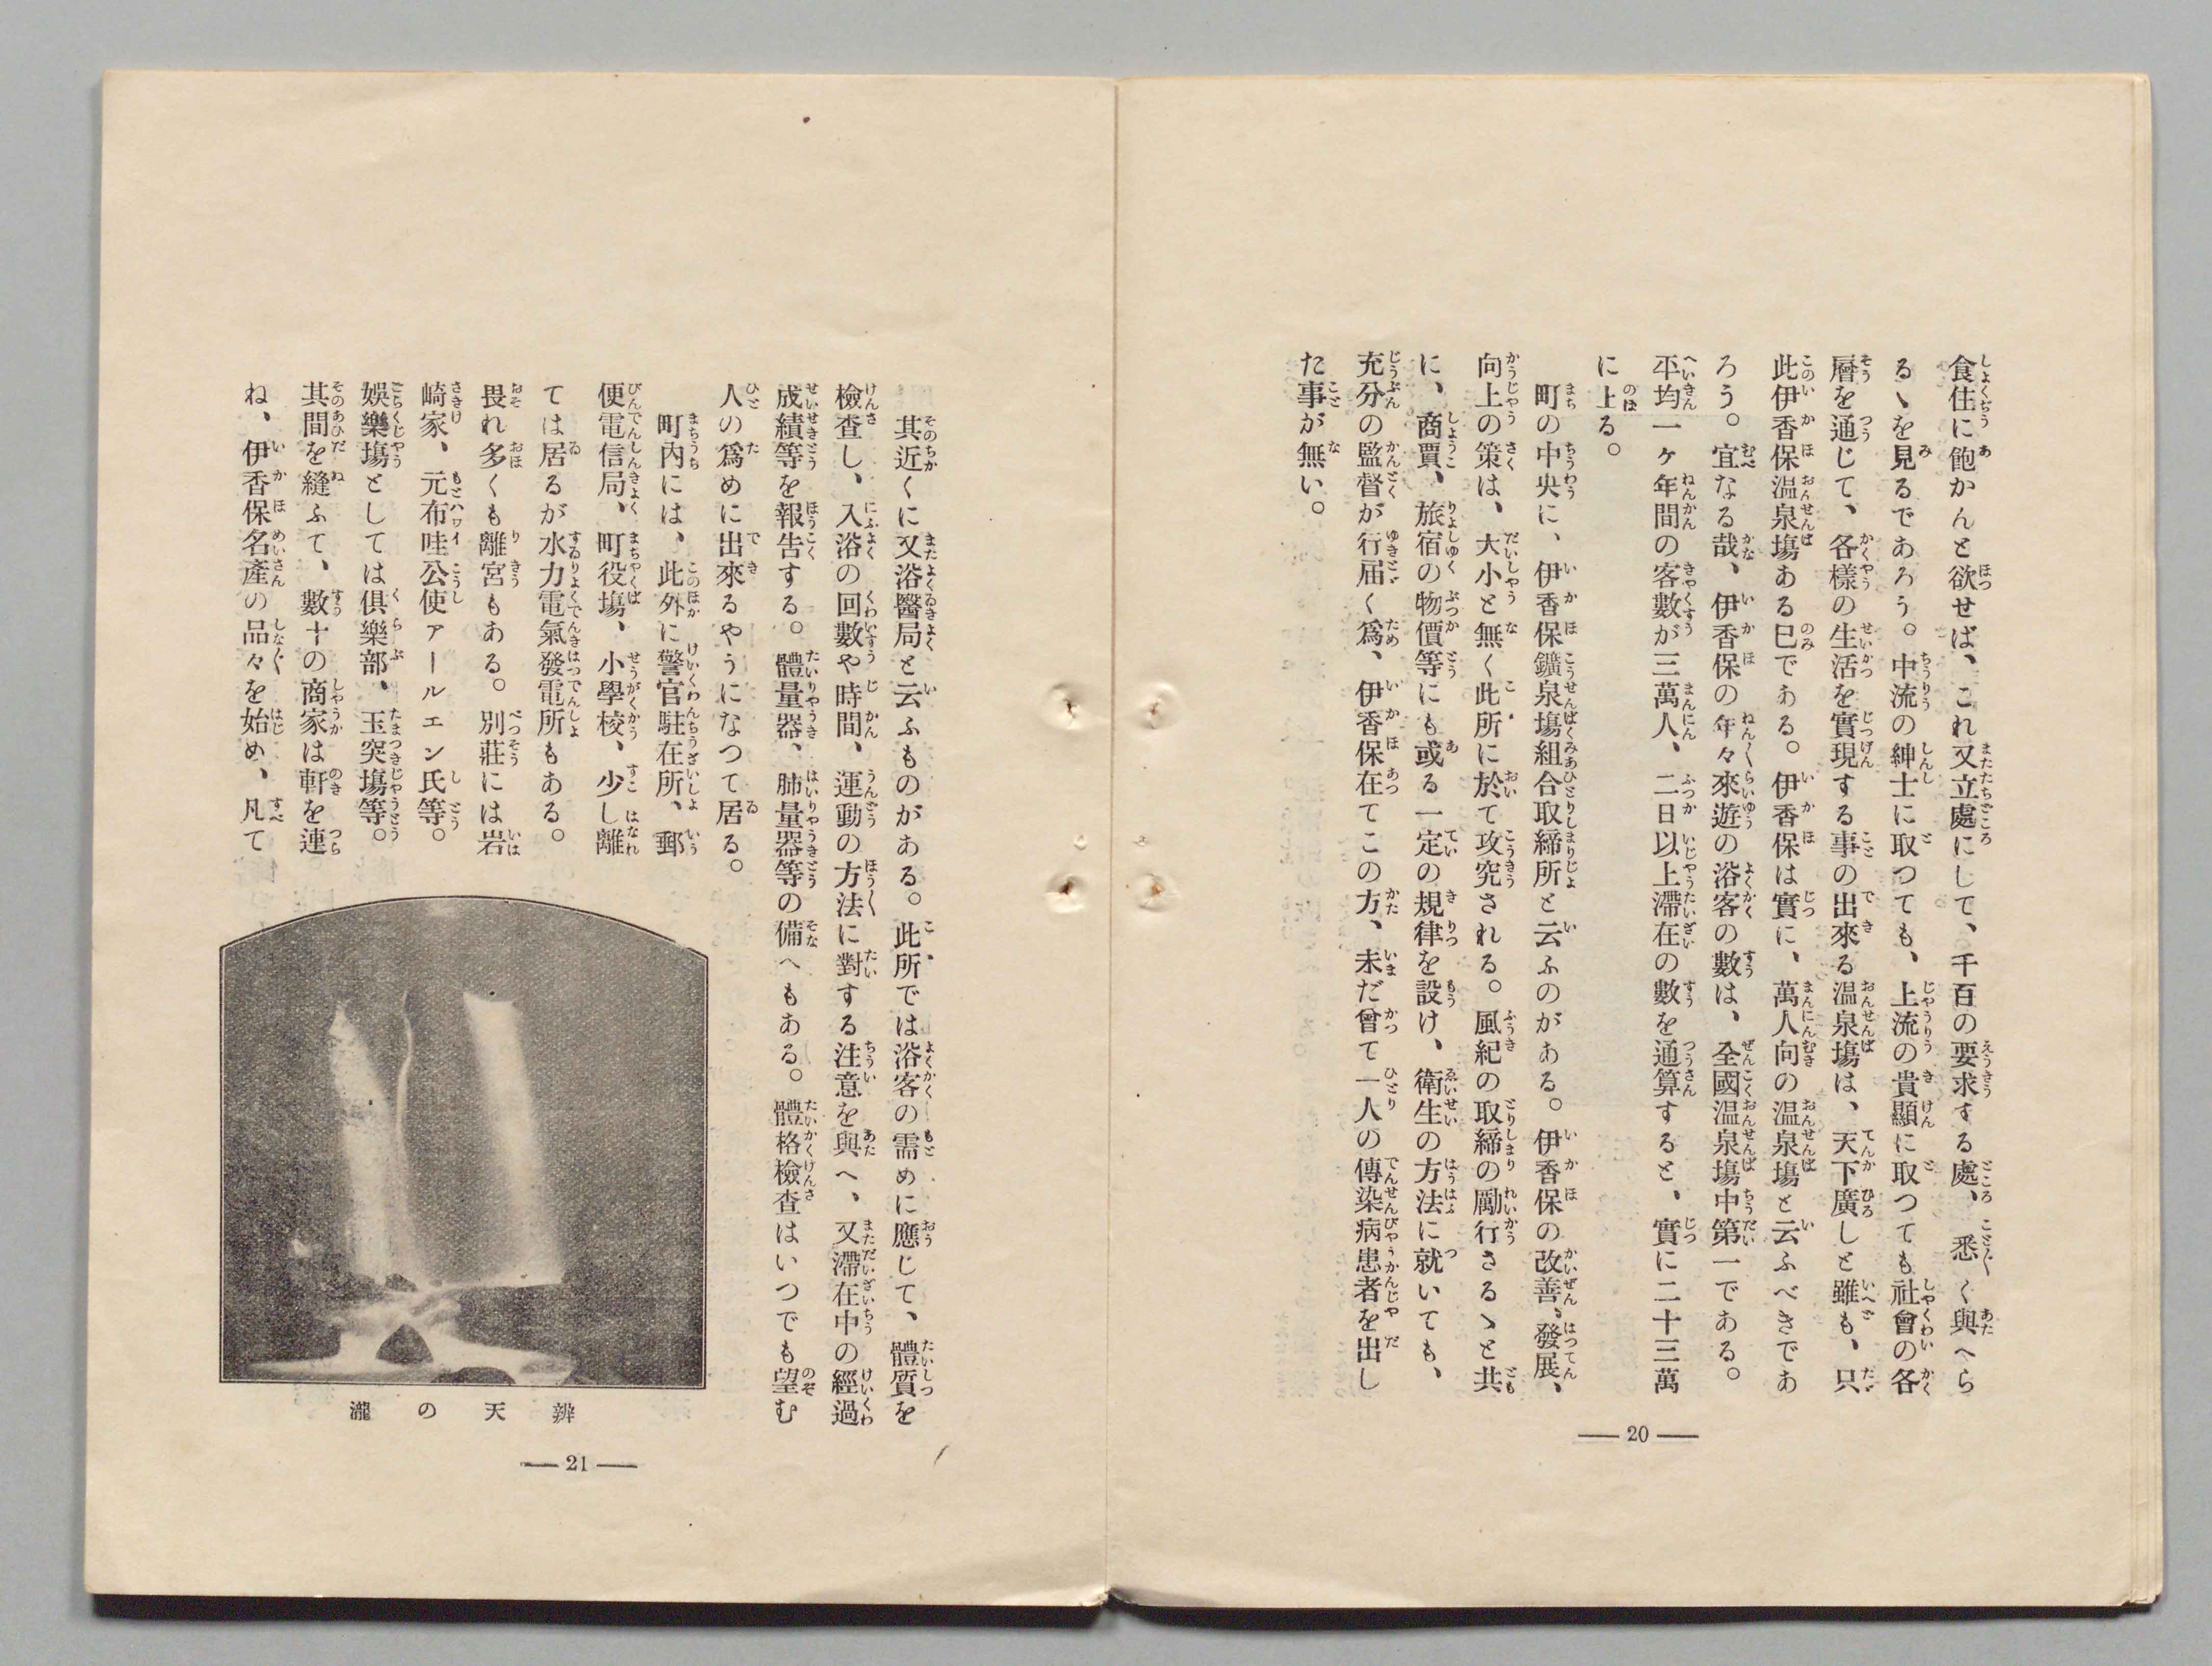 食住に飽かんと欲せば、これ又立處にして、千百の要求する處、悉く與へら
るゝを見るであろう。中流の紳士に取つても、上流の貴顯に取つても社會の各
層を通じて、各樣の生活を實現する事の出來る温泉塲は、天下廣しと雖も、只
此伊香保温泉塲ある巳である。伊香保は實に、萬人向の温泉塲と云ふべきであ
ろう。宜なる哉、伊香保の年々來遊の浴客の數は、全國温泉塲中第一である。
平均一ヶ年間の客數が三萬人、二日以上滯在の數を通算すると、實に二十三萬
に上る。
町の中央に、伊香保鑛泉塲組合取締所と云ふのがある。伊香保の改善、發展、
向上の策は、大小と無く此所に於て攻究される。風紀の取締の勵行さるゝと共
に、商賈、旅宿の物價等にも或る一定の規律を設け、衛生の方法に就いても、
充分の監督が行届く爲、伊香保在てこの方、未だ曾て一人の傳染病患者を出し
た事が無い。
― 20 ―
其近くに又浴醫局と云ふものがある。此所では浴客の需めに應じて、體質を
檢査し、入浴の回數や時間、運動の方法に對する注意を與へ、又滯在中の經過
成績等を報告する。體量器、肺量器等の備へもある。體格檢査はいつでも望む
人の爲めに出來るやうになつて居る。
町內には、此外に警官駐在所、郵
便電信局、町役塲、小學校、少し離
ては居るが水力電氣發電所もある。
畏れ多くも離宮もある。別莊には岩
崎家、元布哇公使アールエン氏等。
娛樂塲としては俱樂部、玉突塲等。
其間を縫ふて、數十の商家は軒を連
ね、伊香保名產の品々を始め、凡て
辨天の瀧
― 21 ―